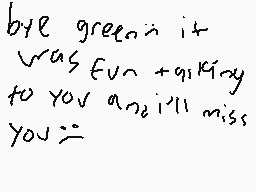 bye green :) it
was fun talking
to you and i'll miss
you :(